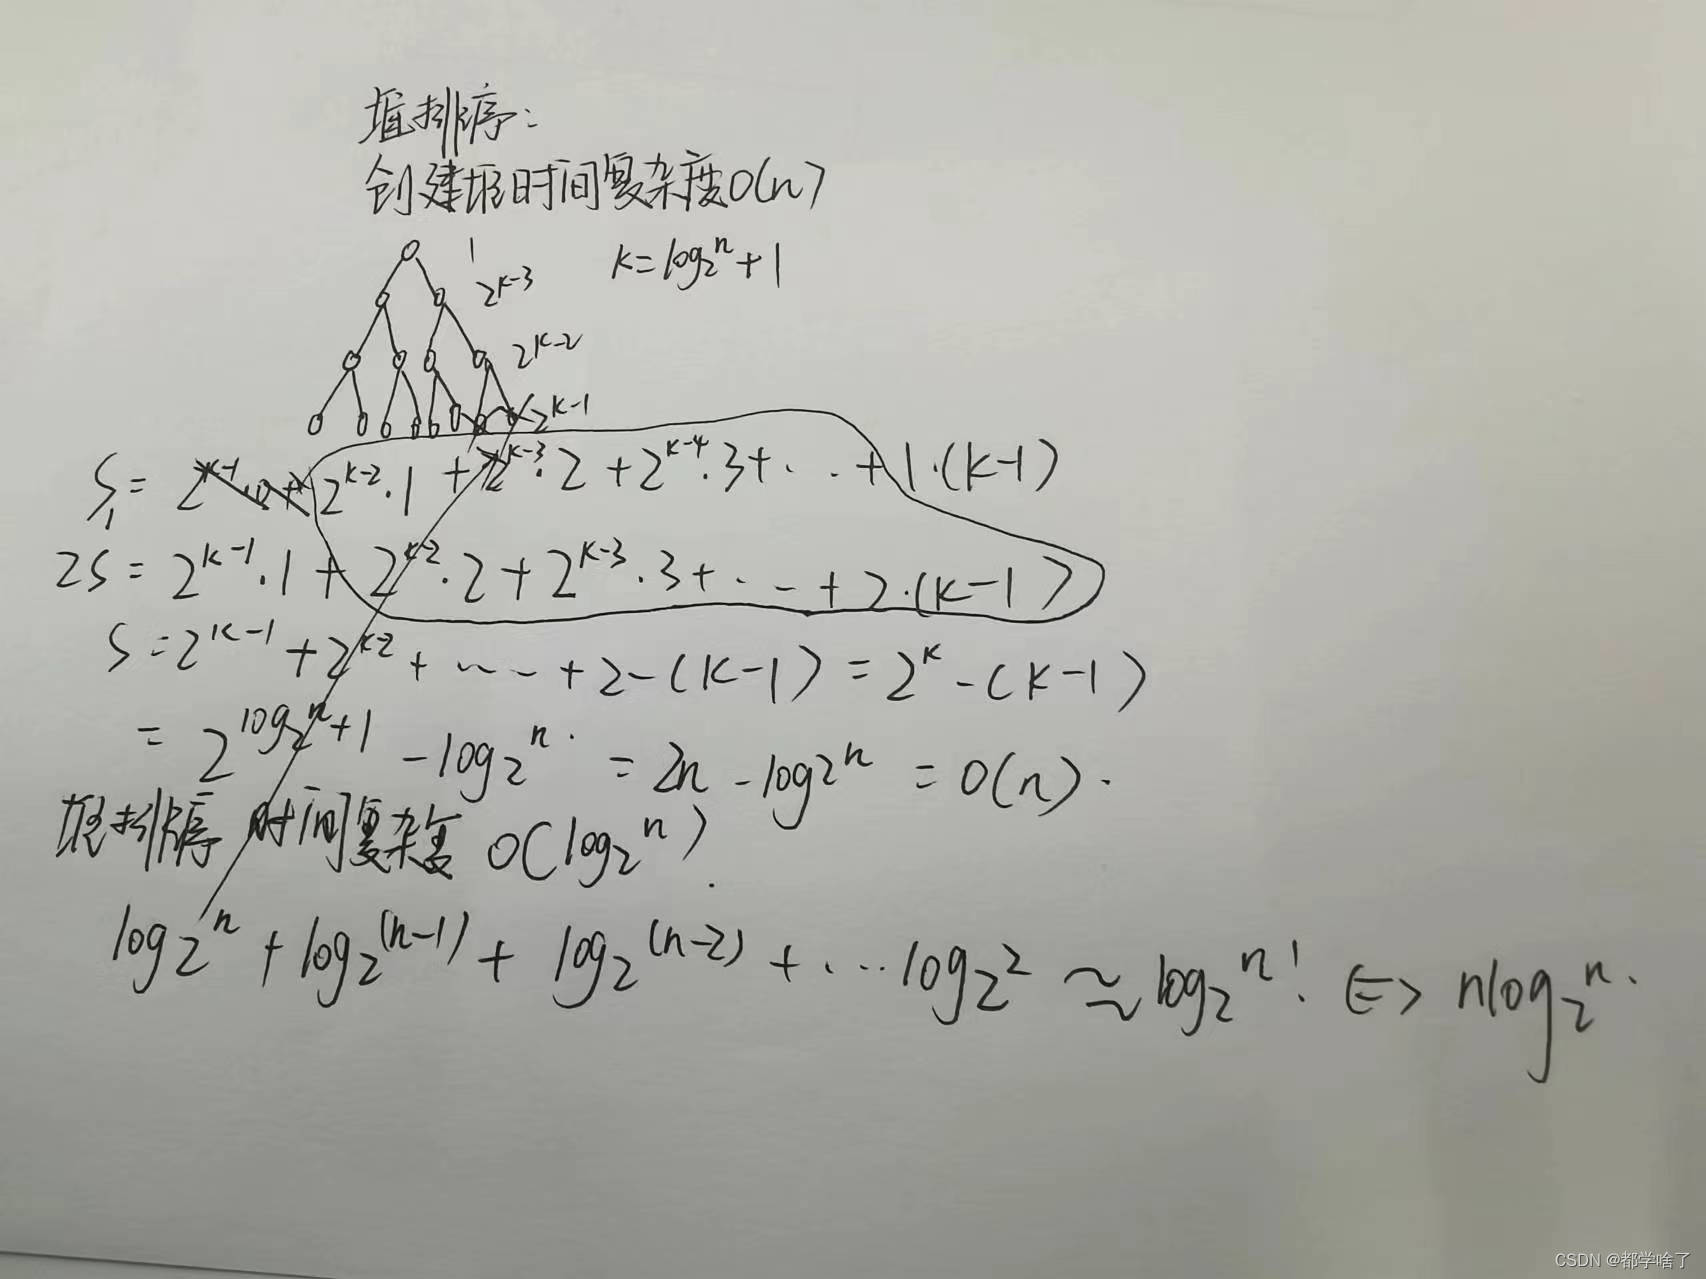 堆排序:
创建堆时间复杂度O(n)
1
k=log₂ⁿ+1
2^{k-3}
2^{k-2}
2^{k-1}
S₁= 2^{k-2}·1 + 2^{k-3}·2 + 2^{k-4}·3+ ··· + 1·(k-1)
2S = 2^{k-1}·1 + 2^{k-2}·2 + 2^{k-3}·3 + ··· + 2·(k-1)
S=2^{k-1}+2^{k-2}+ ··· +2-(k-1) = 2^k-(k-1)
= 2^{log₂ⁿ+1} - log₂ⁿ = 2n - log₂ⁿ = O(n).
堆排序 时间复杂复 O(log₂ⁿ).
log₂ⁿ + log₂^{(n-1)} + log₂^{(n-2)} + ··· log₂² ≈ log₂^{n!} ⇔ nlog₂ⁿ.
CSDN @都学啥了